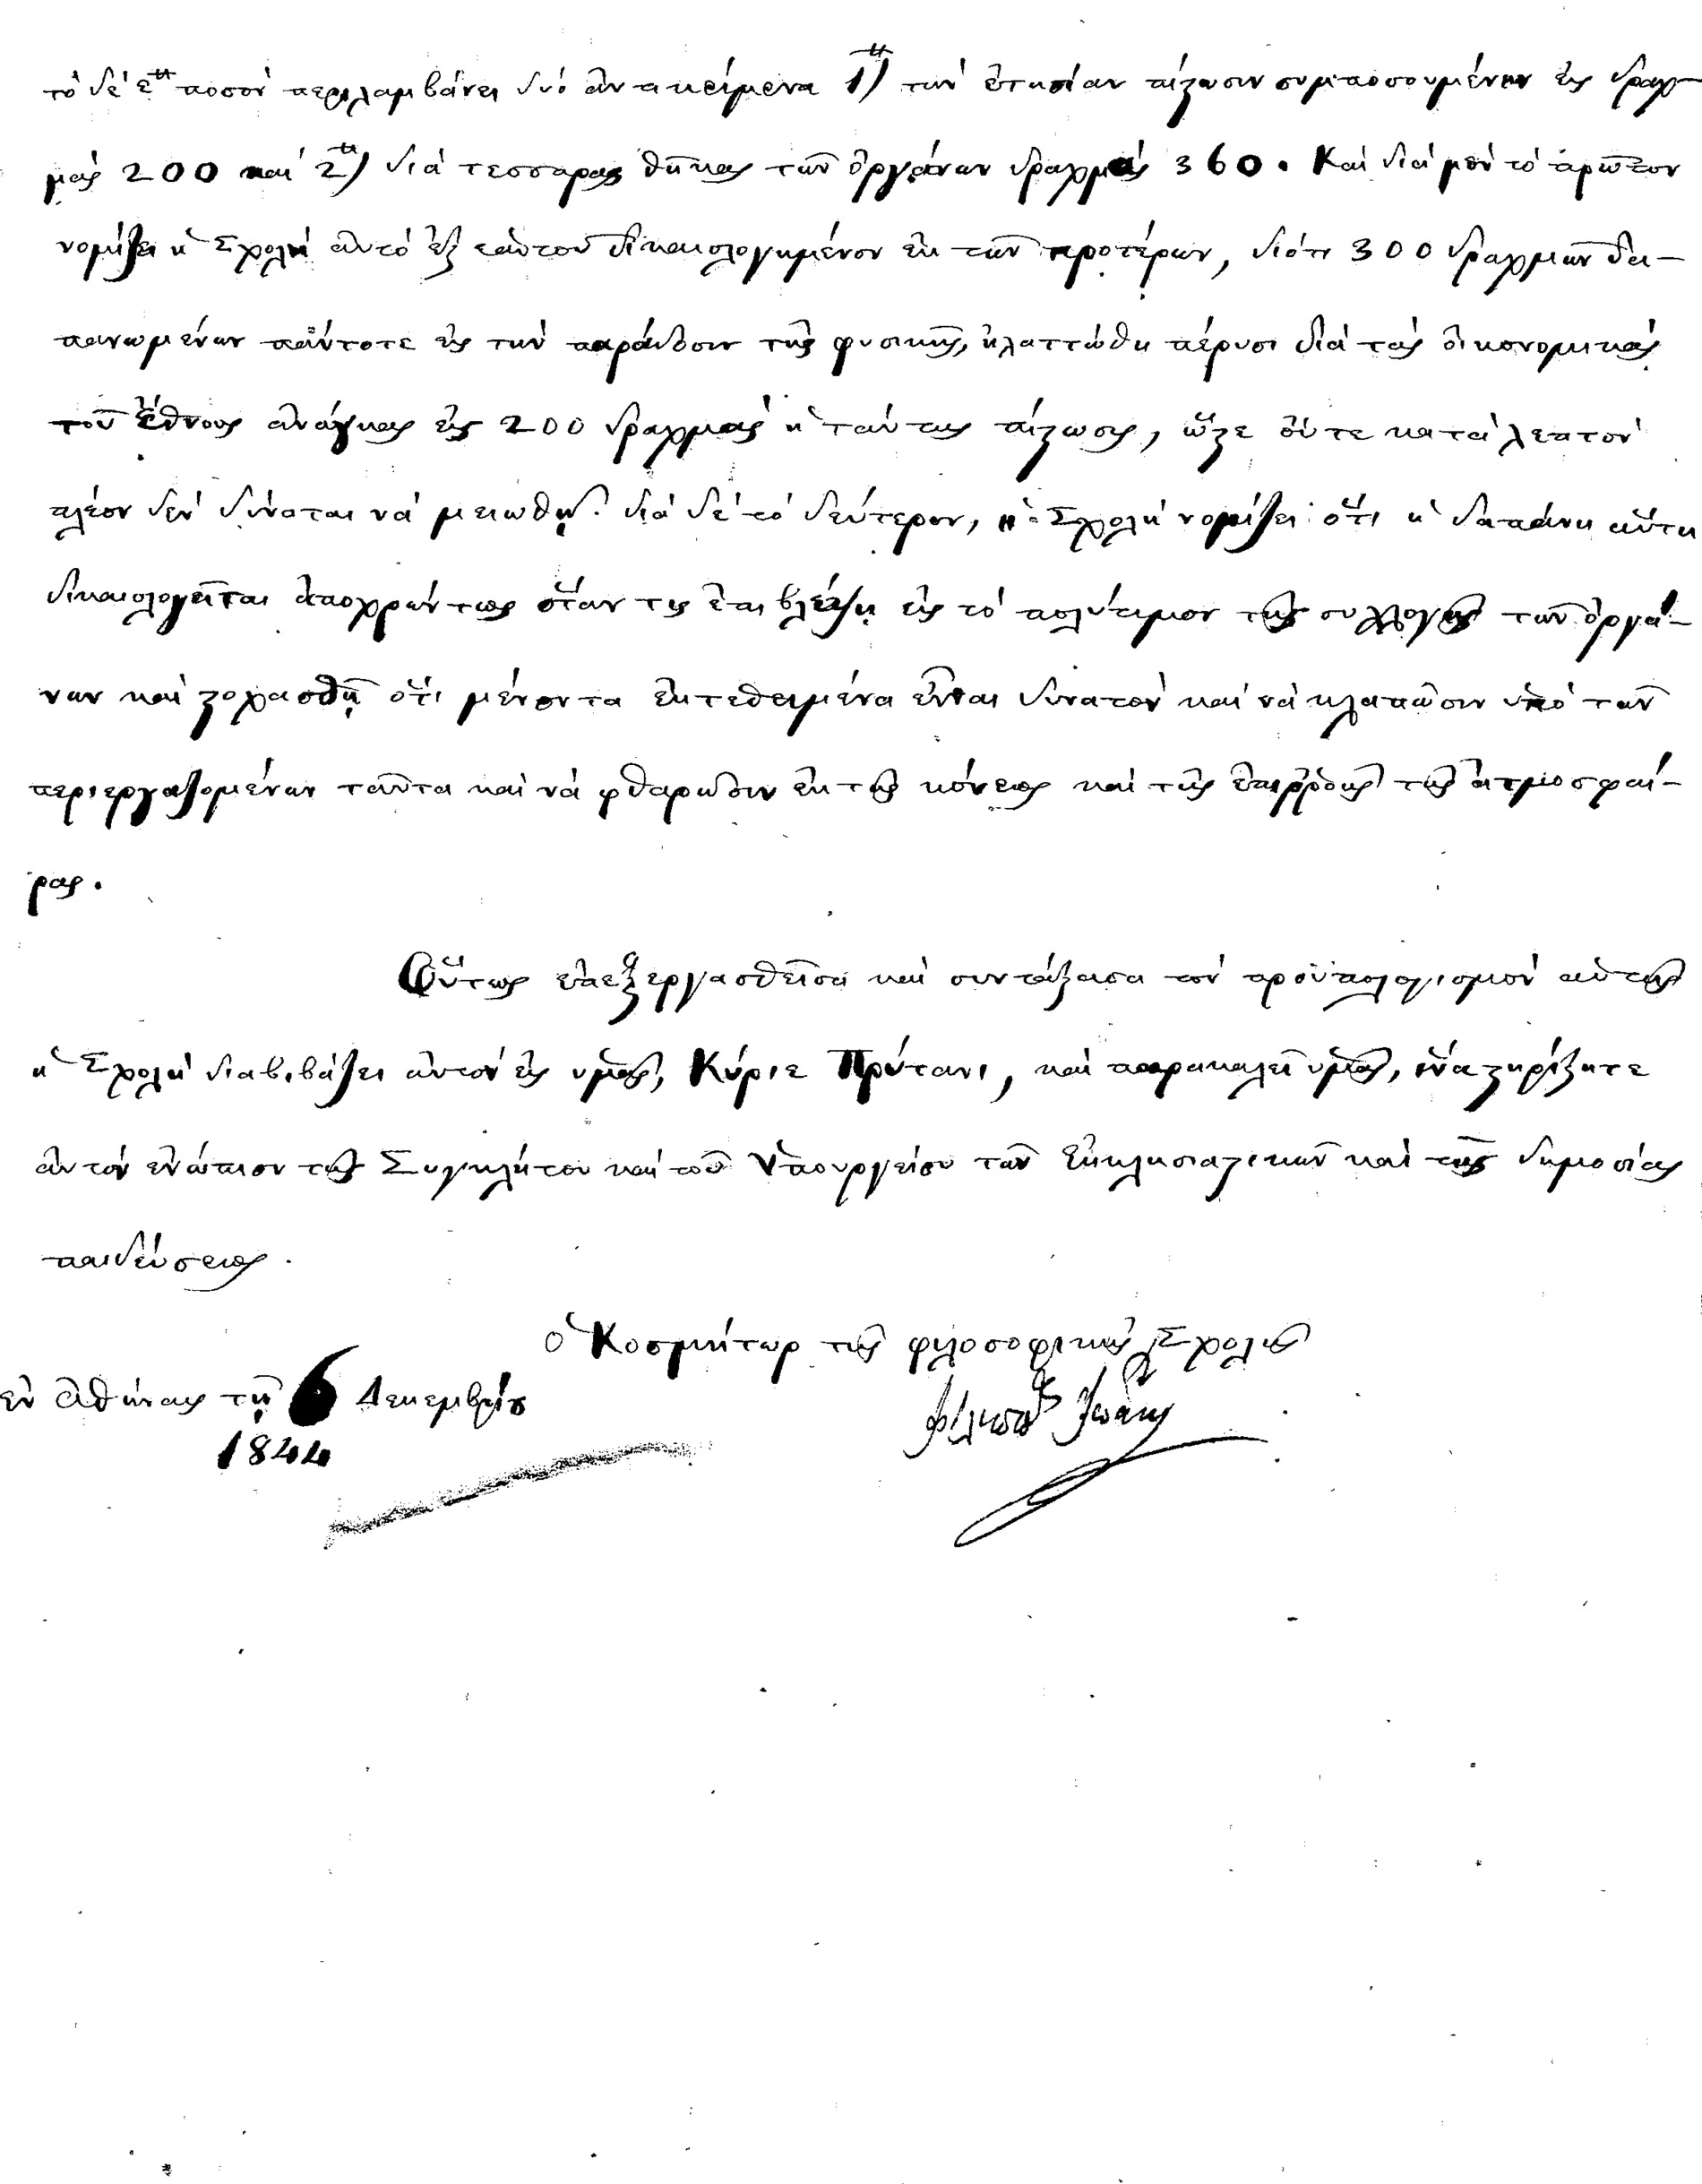 τὸ δὲ ε<sup>ον</sup> ποσὸν περιλαμβάνει δύο ἀντικείμενα 1<sup>ον</sup>) τὴν ἐτησίαν πίστωσιν συμποσουμένην εἰς δραχ-
μὰς 200 καὶ 2<sup>ον</sup>) διὰ τέσσαρας θήκας τῶν ὀργάνων δραχμὰς 360. Καὶ διὰ μὲν τὸ πρῶτον
νομίζει ἡ Σχολὴ αὐτὸ ἐξ ἑαυτοῦ δικαιολογημένον ἐκ τῶν προτέρων, διότι 300 δραχμῶν δα-
πανωμένων πάντοτε εἰς τὴν παράδοσιν τῆς φυσικῆς, ἠλαττώθη πέρυσι διὰ τὰς οἰκονομικὰς
τοῦ ἔθνους ἀνάγκας εἰς 200 δραχμὰς ἡ ταύτης πίστωσις, ὥστε οὔτε κατὰ λεπτὸν
πλέον δὲν δύναται νὰ μειωθῇ. διὰ δὲ τὸ δεύτερον, ἡ Σχολὴ νομίζει ὅτι ἡ δαπάνη αὕτη
δικαιολογεῖται ἀποχρώντως ὅταν τις ἐπιβλέψῃ εἰς τὸ πολύτιμον τῆς συλλογῆς τῶν ὀργά-
νων καὶ στοχασθῇ ὅτι μένοντα ἐκτεθειμένα εἶναι δυνατὸν καὶ νὰ κλαπῶσιν ὑπὸ τῶν
περιεργαζομένων ταῦτα καὶ νὰ φθαρῶσιν ἐκ τῆς κόνεως καὶ τῆς ἐπιρροῆς τῆς ἀτμοσφαί-
ρας.
Οὕτως ἐπεξεργασθεῖσα καὶ συντάξασα τὸν προϋπολογισμὸν αὐτῆς
ἡ Σχολὴ διαβιβάζει αὐτὸν εἰς ὑμᾶς, Κύριε Πρύτανι, καὶ παρακαλεῖ ὑμᾶς, ἵνα στηρίξητε
αὐτὸν ἐνώπιον τῆς Συγκλήτου καὶ τοῦ Ὑπουργείου τῶν Ἐκκλησιαστικῶν καὶ τῆς δημοσίας
παιδεύσεως.
Ὁ Κοσμήτωρ τῆς φιλοσοφικῆς Σχολῆς
ἐν Ἀθήναις τῇ 6 Δεκεμβρίου
Φίλιππος Ἰωάννου
1844